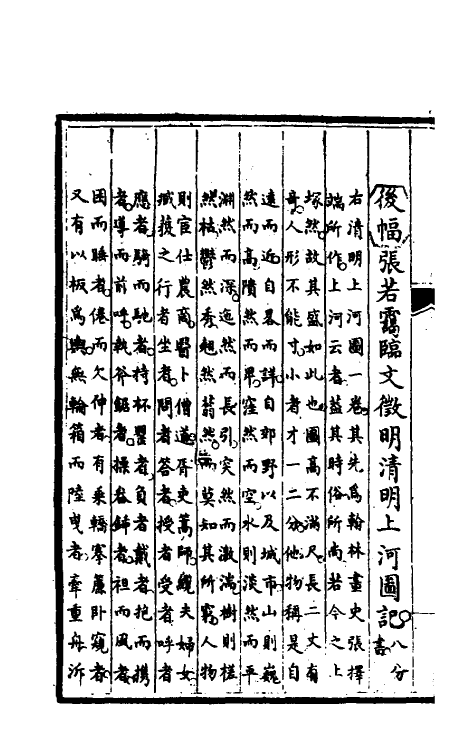 後幅張若靄臨文徵明清明上河圖記八分書
右清明上河圖一卷其先為翰林畫史張擇
端所作上河云者蓋其時俗所尚若今之上
塚然故其盛如此也圖高不滿尺長二丈有
奇人形不能寸小者才一二分他物稱是自
遠而近自畧而詳自郊野以及城市山則巍
然而高隤然而卑窪然而空水則淡然而平
淵然而深迤然而長引突然而激湍樹則槎
然枯鬱然秀翹然蓊然而莫知其所窮人物
則官仕農商醫卜僧道胥吏篙師纜夫婦女
臧獲之行者坐者問者答者授者受者呼者
應者騎而馳者持杯罌者負者戴者抱而携
者導而前呼執斧鋸者操畚鍤者袒而風者
困而睡者倦而欠伸者有乘轎搴簾卧窺者
又有以板為輿無輪箱而陸曳者牽重舟泝